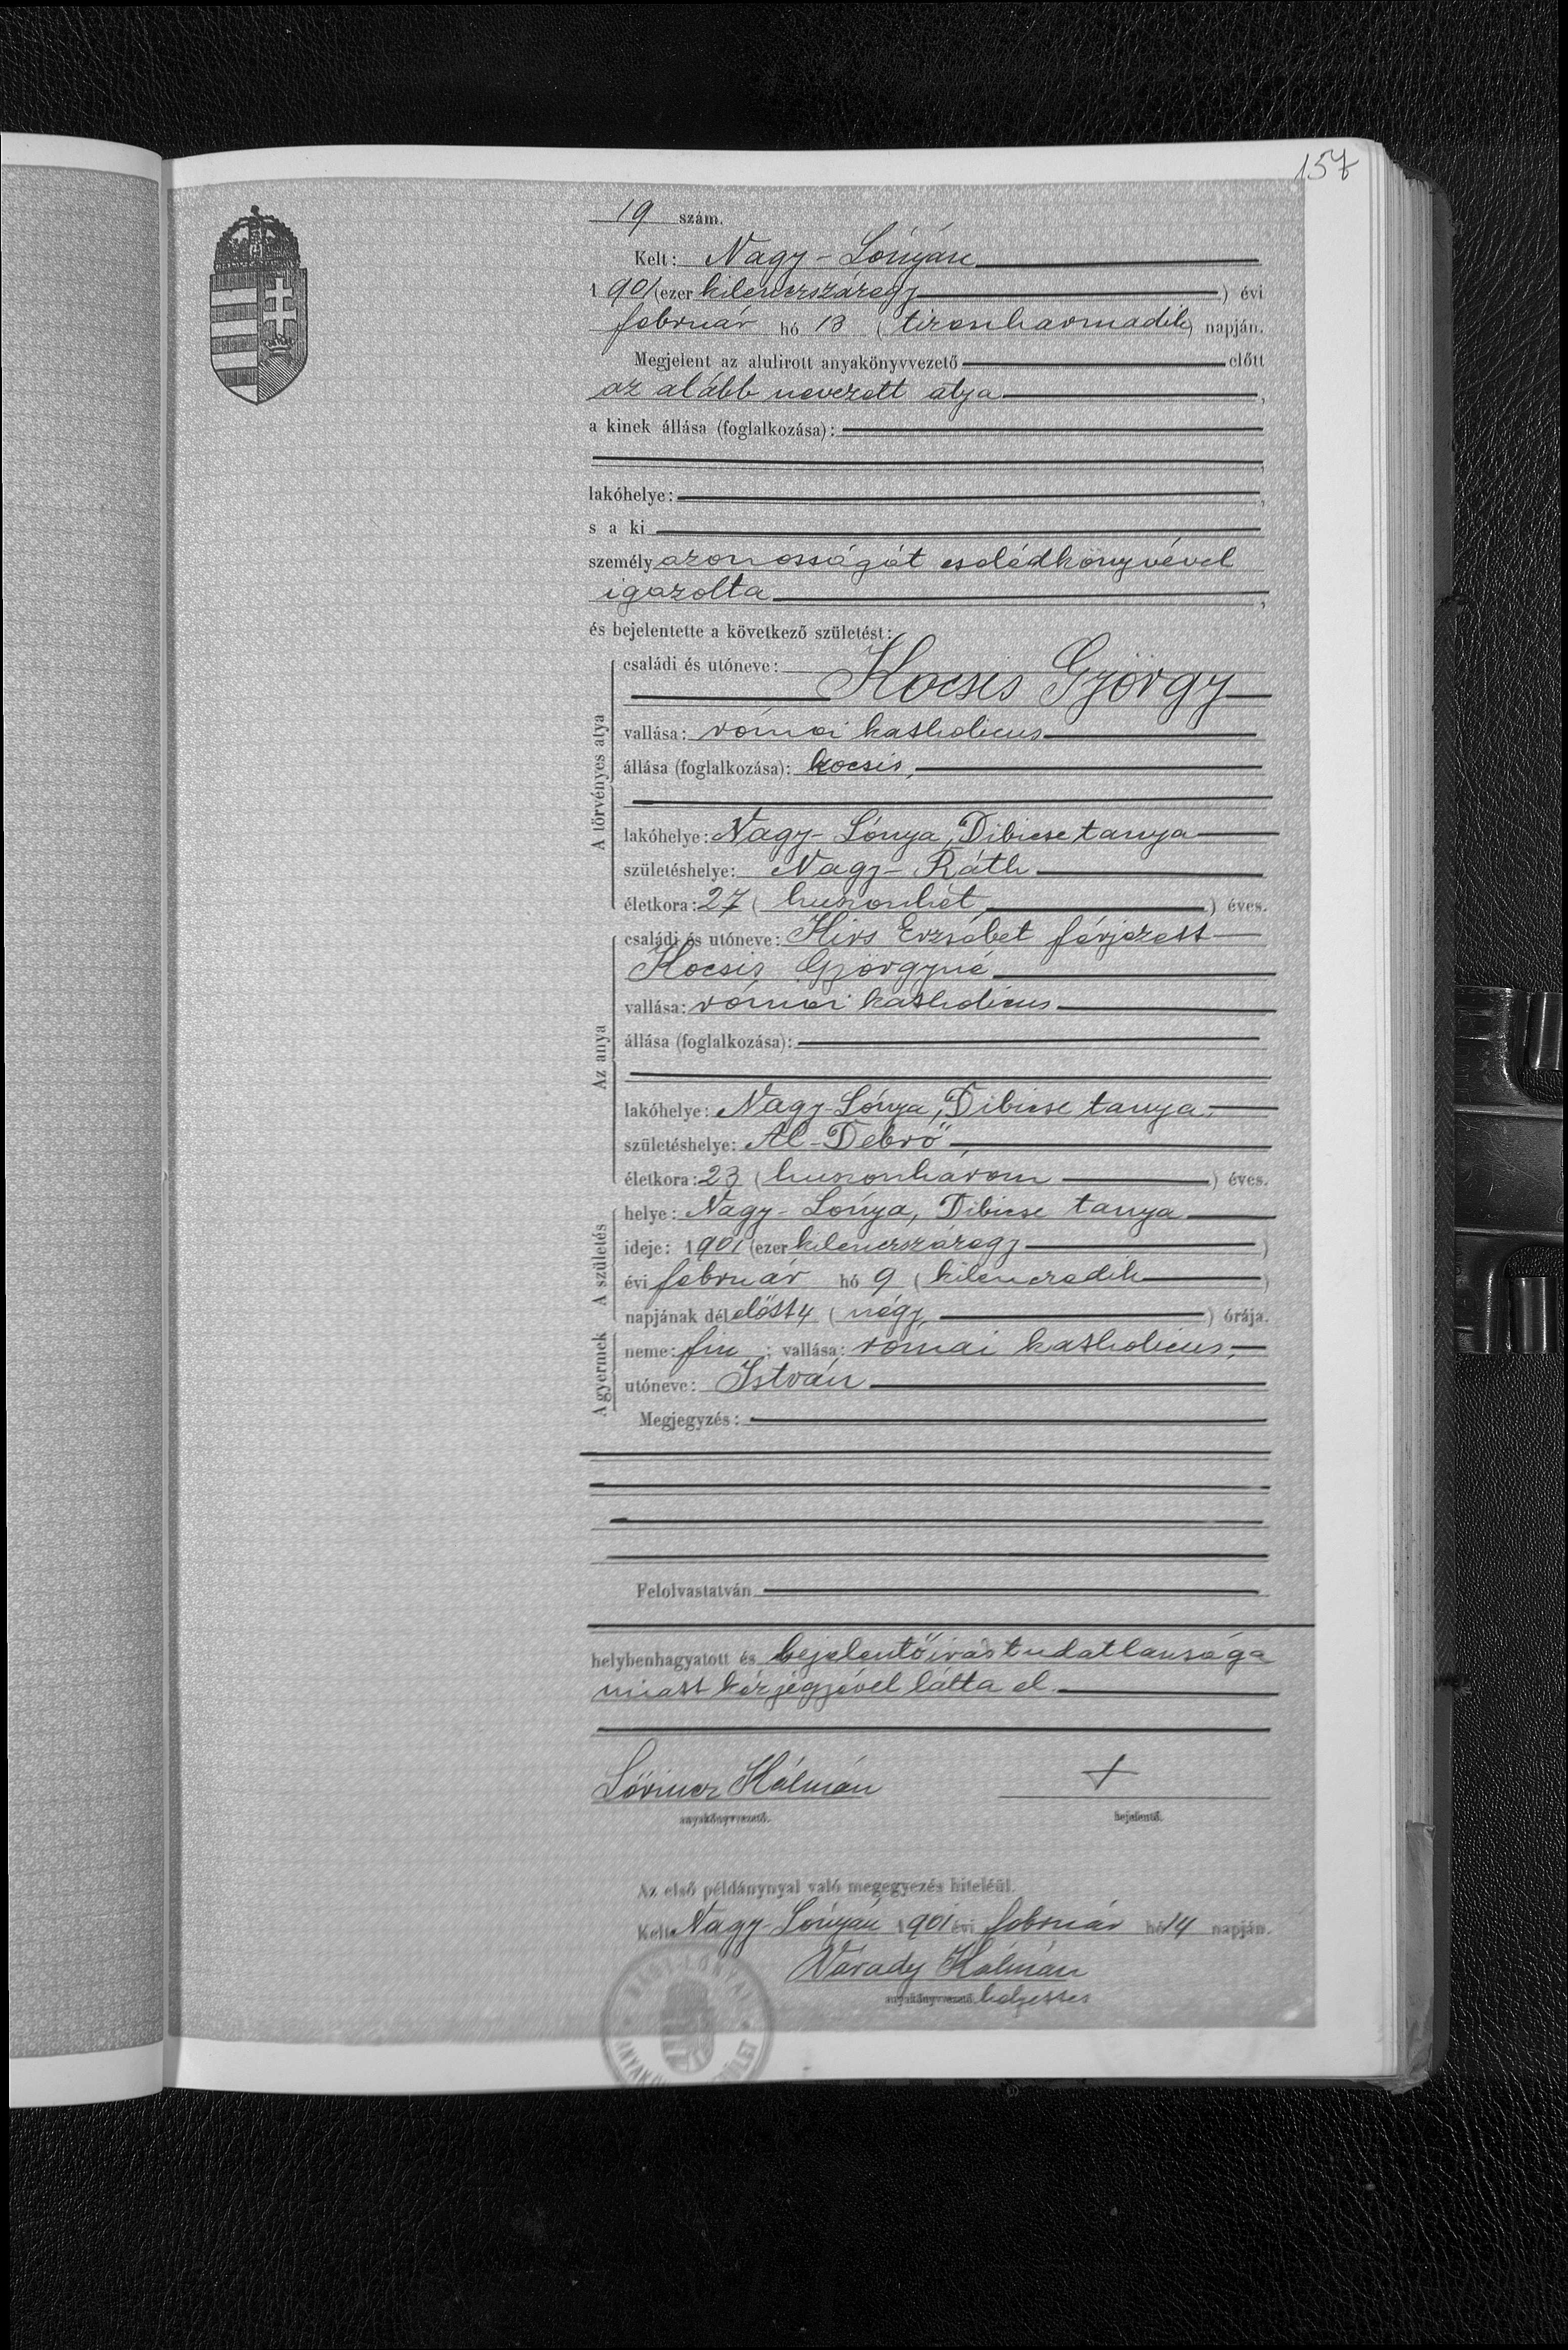 157
19 szám.
Kelt: Nagy-Lónyán
1901 (ezer kilenczszázegy) évi
február hó 13 (tizenharmadik) napján.
Megjelent az alulirott anyakönyvvezető előtt
az alább nevezett atya,
a kinek állása (foglalkozása):
lakóhelye:
s a ki
személyazonosságát cselédkönyvével
igazolta,
és bejelentette a következő születést:
A törvényes atya
családi és utóneve:
Kocsis György
vallása: római katholicus
állása (foglalkozása): kocsis,
lakóhelye: Nagy-Lónya, Dibicse tanya
születéshelye: Nagy-Ráth
életkora: 27 (huszonhét) éves.
Az anya
családi és utóneve: Kirs Erzsébet férjezett
Kocsis Györgyné
vallása: római katholicus
állása (foglalkozása):
lakóhelye: Nagy-Lónya, Dibicse tanya,
születéshelye: Al-Debrő
életkora: 23 (huszonhárom) éves.
A születés
helye: Nagy-Lónya, Dibicse tanya
ideje: 1901 (ezer kilenczszázegy)
évi február hó 9 (kilenczedik)
napjának délelőtt 4 (négy) órája.
A gyermek
neme: fiu; vallása: római katholicus,
utóneve: István
Megjegyzés:
Felolvastatván
helybenhagyatott és bejelentő irástudatlansága
miatt kézjegyével látta el.
Lőrincz Kálmán +
anyakönyvvezető. bejelentő.
Az első példánynyal való megegyezés hiteléül.
Kelt Nagy-Lónyán 1901 évi február hó 14 napján.
Várady Kálmán
anyakönyvvezető helyettes